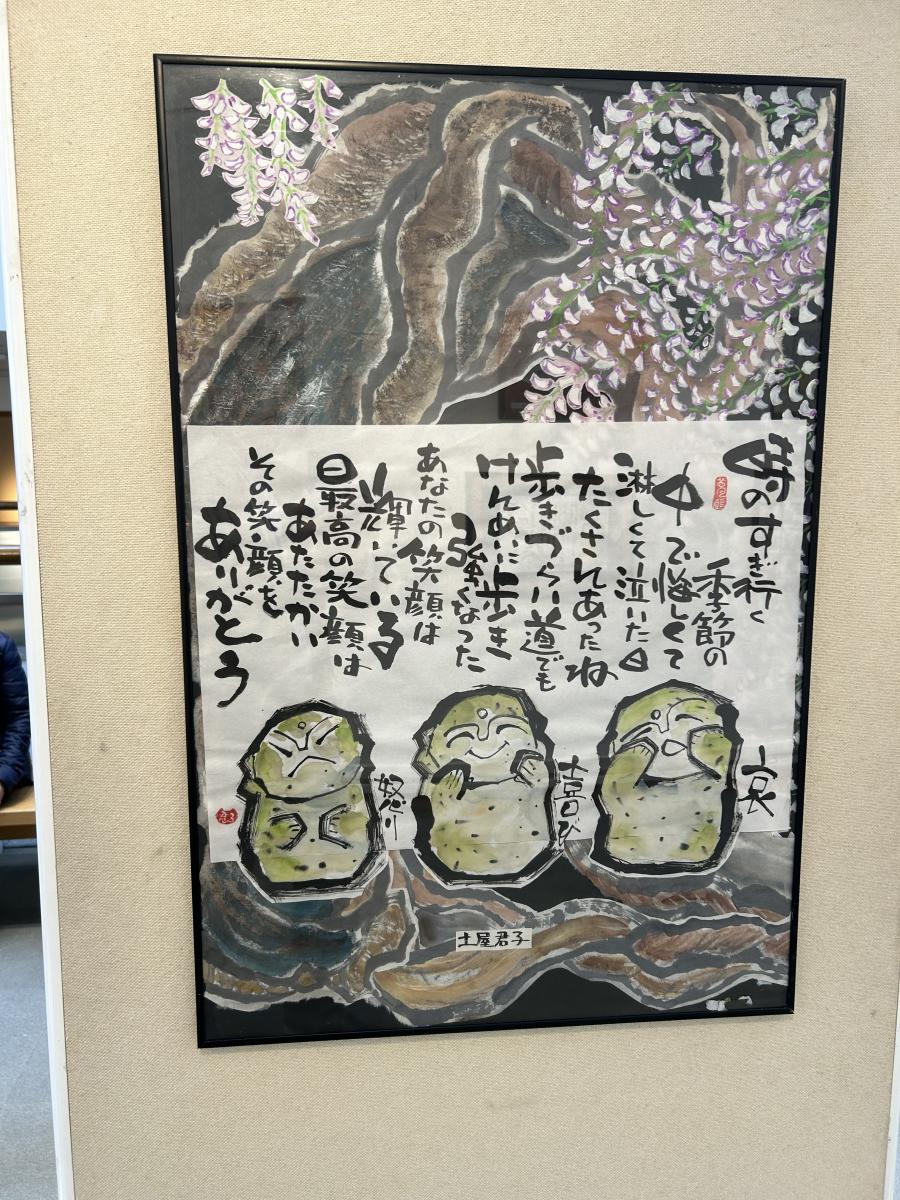 時のすぎ行く
季節の
中で悔しくて
淋しくて泣いた
たくさんあったね
歩きづらい道でも
けんめいに歩き
強くなった
あなたの笑顔は
光輝いている
最高の笑顔は
あたたかい
その笑顔を
ありがとう
哀
喜び
怒り
土屋君子